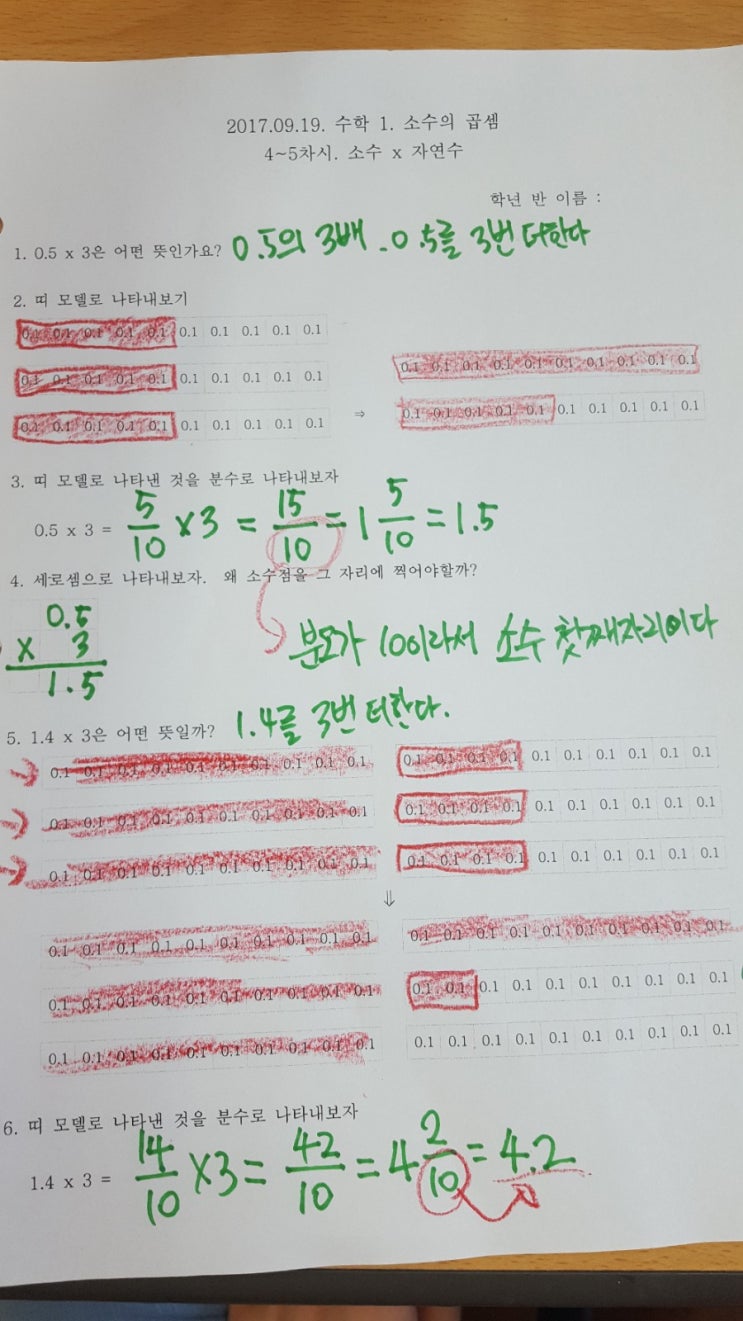 2017.09.19. 수학 1. 소수의 곱셈
4~5차시. 소수 x 자연수
학년 반 이름 :
1. 0.5 x 3은 어떤 뜻인가요? 0.5의 3배. 0.5를 3번 더한다
2. 띠 모델로 나타내보기
0.1 0.1 0.1 0.1 0.1 0.1 0.1 0.1 0.1 0.1
0.1 0.1 0.1 0.1 0.1 0.1 0.1 0.1 0.1 0.1 0.1 0.1 0.1 0.1 0.1 0.1 0.1 0.1 0.1 0.1
0.1 0.1 0.1 0.1 0.1 0.1 0.1 0.1 0.1 0.1 ⇒ 0.1 0.1 0.1 0.1 0.1 0.1 0.1 0.1 0.1 0.1
3. 띠 모델로 나타낸 것을 분수로 나타내보자
0.5 x 3 = 5/10 x 3 = 15/10 = 1 5/10 = 1.5
4. 세로셈으로 나타내보자. 왜 소수점을 그 자리에 찍어야할까?
0.5
x 3
1.5
분모가 10이라서 소수 첫째자리이다
5. 1.4 x 3은 어떤 뜻일까? 1.4를 3번 더한다.
→ 0.1 0.1 0.1 0.1 0.1 0.1 0.1 0.1 0.1 0.1 0.1 0.1 0.1 0.1 0.1 0.1 0.1 0.1 0.1 0.1
→ 0.1 0.1 0.1 0.1 0.1 0.1 0.1 0.1 0.1 0.1 0.1 0.1 0.1 0.1 0.1 0.1 0.1 0.1 0.1 0.1
→ 0.1 0.1 0.1 0.1 0.1 0.1 0.1 0.1 0.1 0.1 0.1 0.1 0.1 0.1 0.1 0.1 0.1 0.1 0.1 0.1
⇓
0.1 0.1 0.1 0.1 0.1 0.1 0.1 0.1 0.1 0.1 0.1 0.1 0.1 0.1 0.1 0.1 0.1 0.1 0.1 0.1
0.1 0.1 0.1 0.1 0.1 0.1 0.1 0.1 0.1 0.1 0.1 0.1 0.1 0.1 0.1 0.1 0.1 0.1 0.1 0.1
0.1 0.1 0.1 0.1 0.1 0.1 0.1 0.1 0.1 0.1 0.1 0.1 0.1 0.1 0.1 0.1 0.1 0.1 0.1 0.1
6. 띠 모델로 나타낸 것을 분수로 나타내보자
1.4 x 3 = 14/10 x 3 = 42/10 = 4 2/10 = 4.2